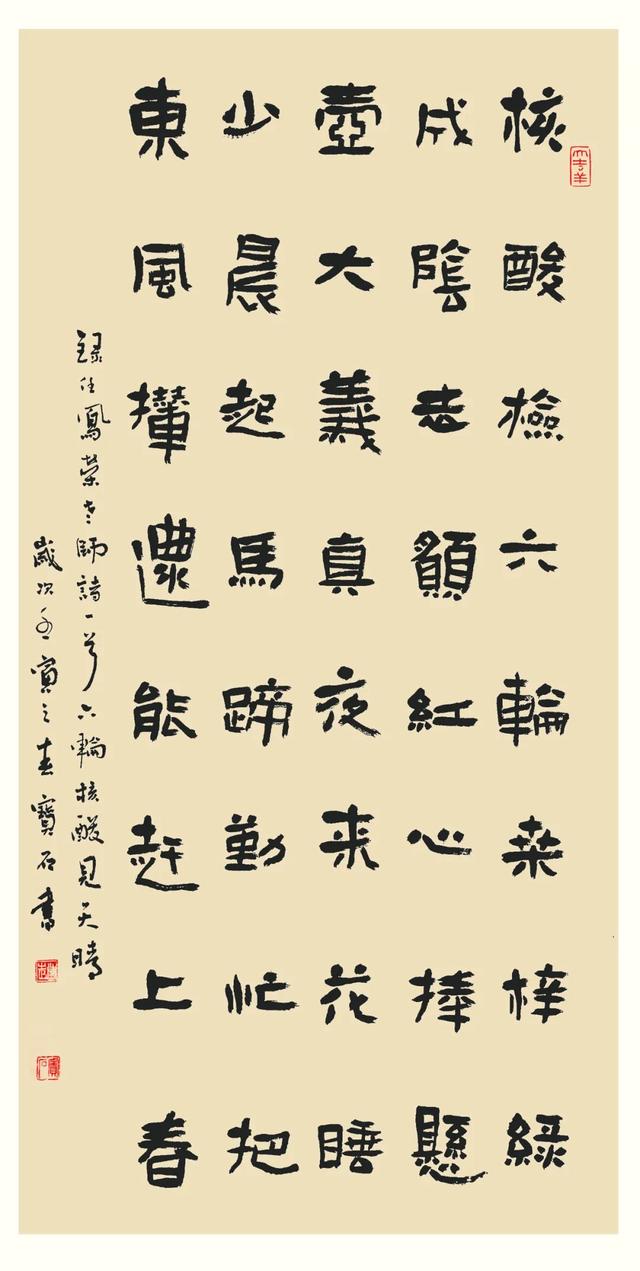 核酸檢六輪桑梓綠
成陰志願紅心捧懸
壺大義真夜来花睡
少晨起馬蹄勤忙把
東風攆還能赶上春
録任鳳榮老師詩一首六輪核酸見天晴
歲次壬寅之春寶石書
大吉羊